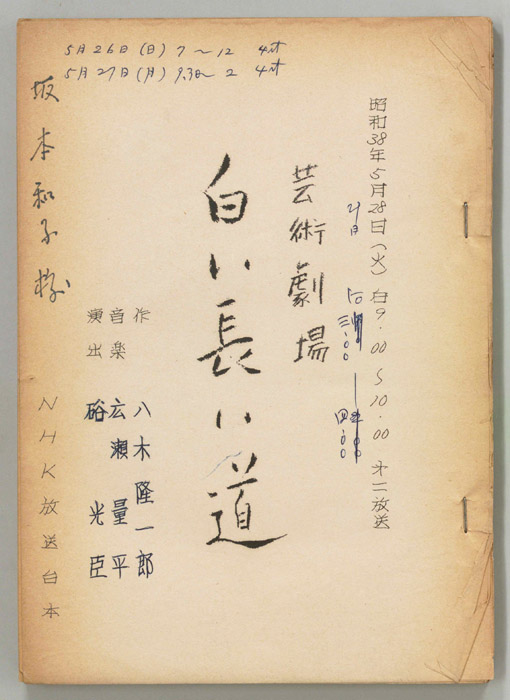 5月26日(日)7~12 4st
5月27日(月)9.30~2 4st
昭和38年5月28日(火)后9.00~10.00 第二放送
21日 后
三.00 四.00
芸術劇場
白い長い道
作 八木隆一郎
音楽 広瀬量平
演出 硲光臣
坂本和子様
NHK放送台本